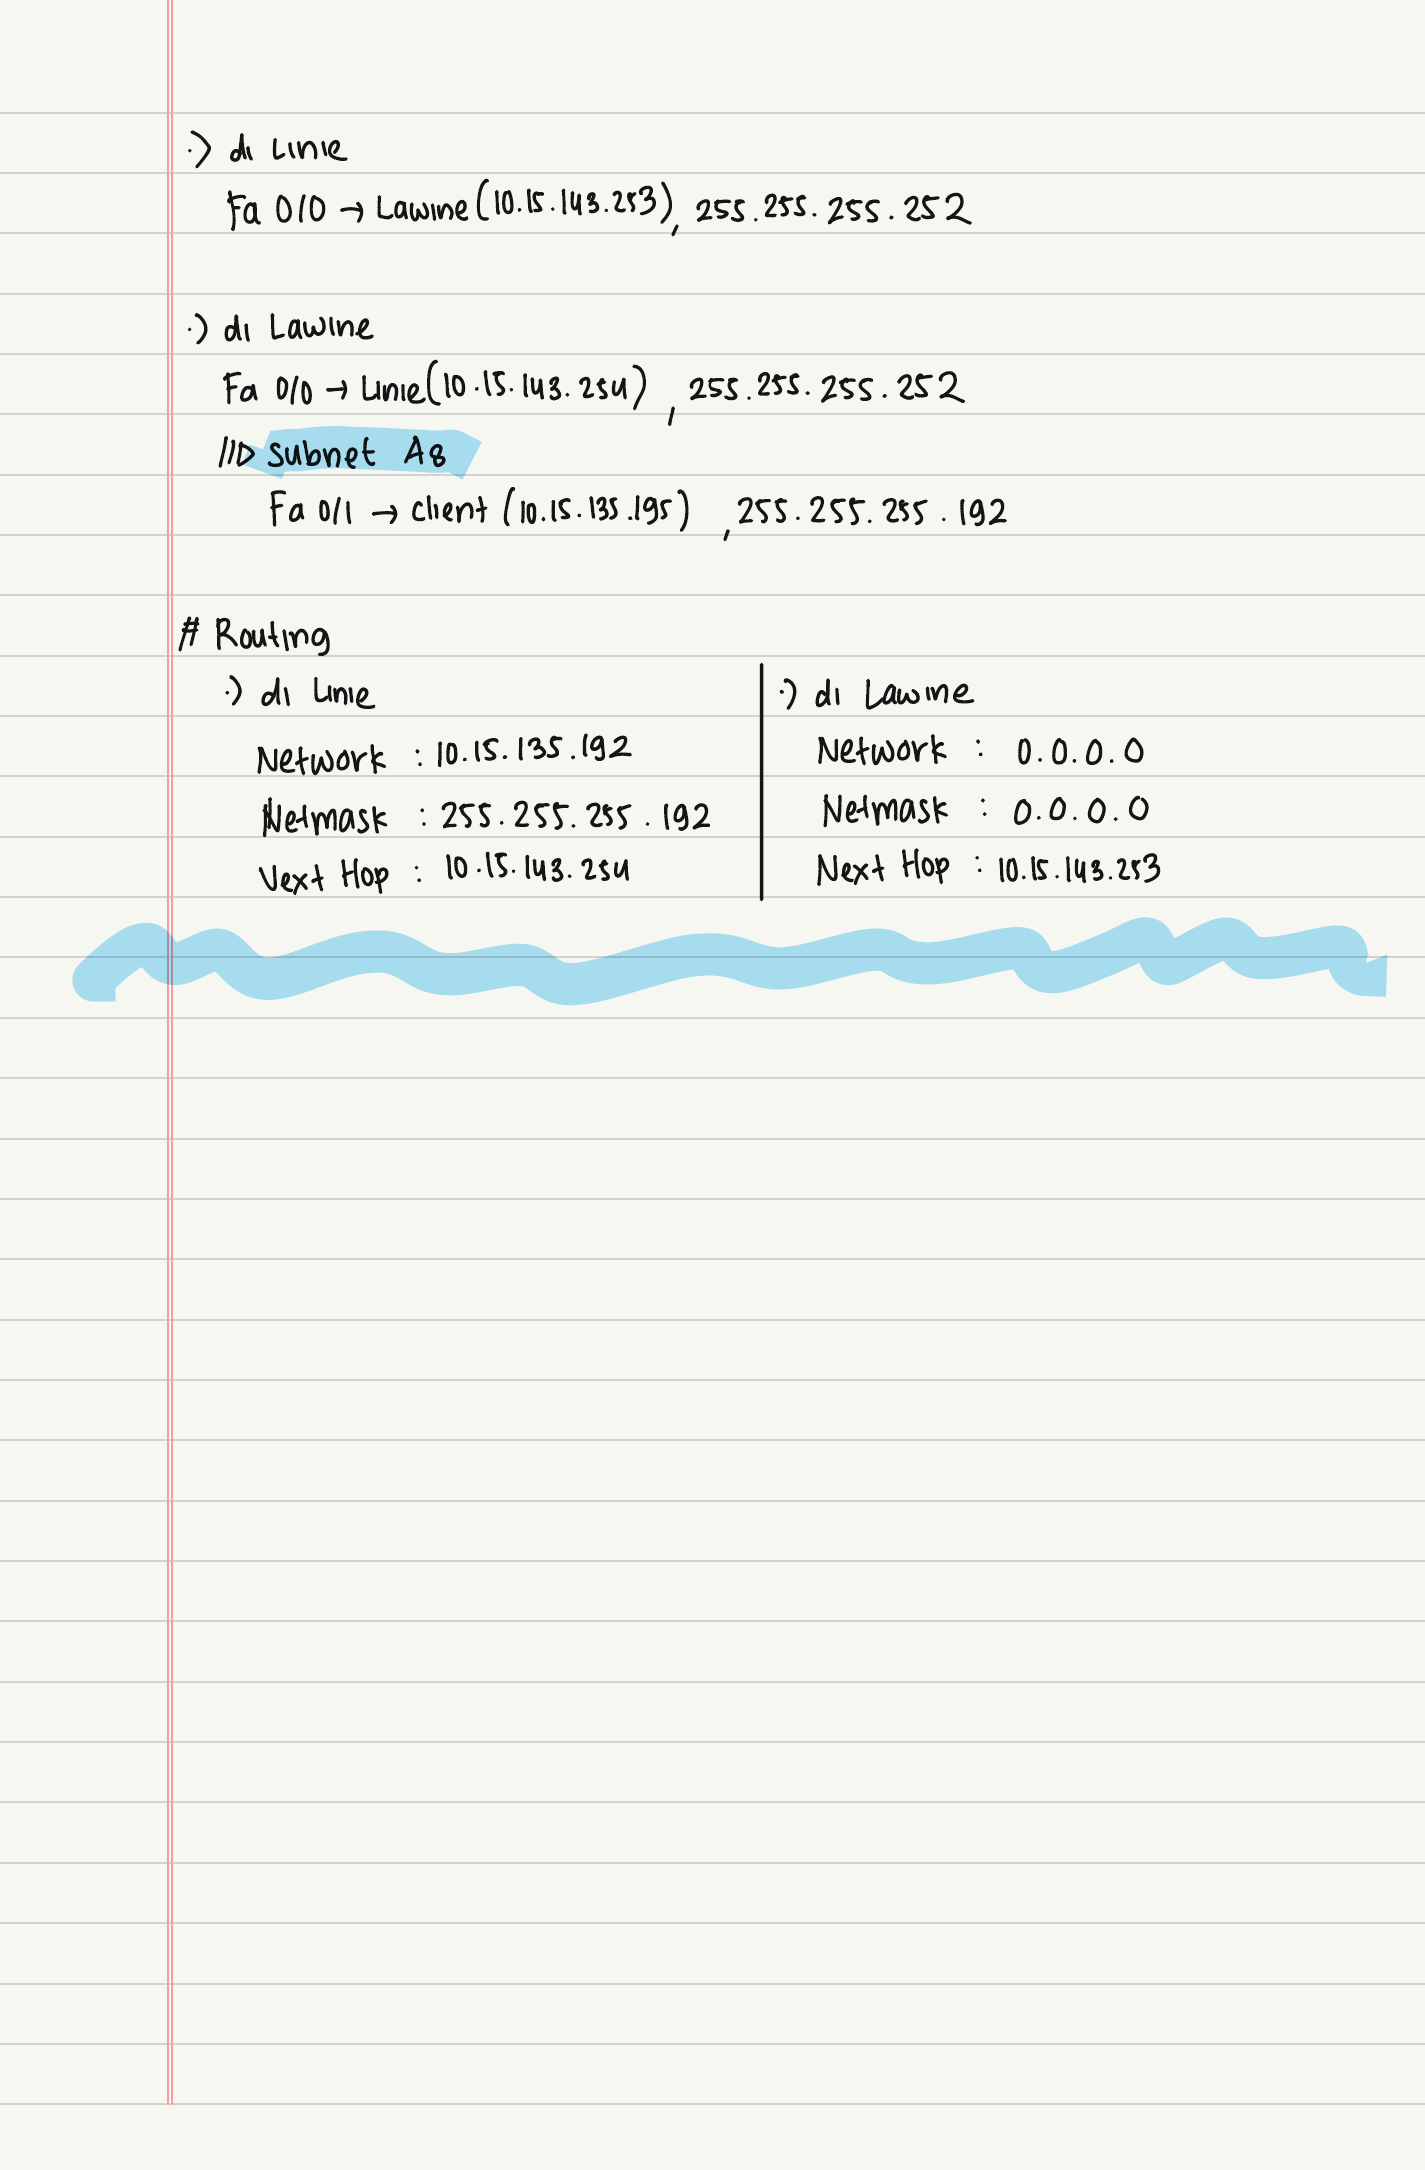 ·) di Linie
Fa 0/0 → Lawine (10.15.143.253), 255.255.255.252
·) di Lawine
Fa 0/0 → Linie (10.15.143.254), 255.255.255.252
Subnet A8
Fa 0/1 → client (10.15.135.195), 255.255.255.192
# Routing
·) di Linie
Network : 10.15.135.192
Netmask : 255.255.255.192
Next Hop : 10.15.143.254
·) di Lawine
Network : 0.0.0.0
Netmask : 0.0.0.0
Next Hop : 10.15.143.253